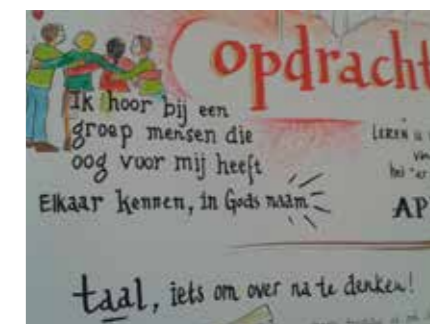 opdracht
Ik hoor bij een
groep mensen die
oog voor mij heeft
Elkaar kennen, in Gods naam
LEREN is
AP
taal, iets om over na te denken!